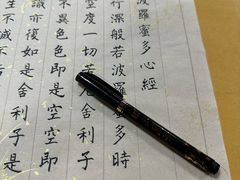 波羅蜜多心經
行深般若波羅蜜多時
空度一切苦厄舍利子
不異色色即是空空即
識亦復如是舍利子是
生不滅不